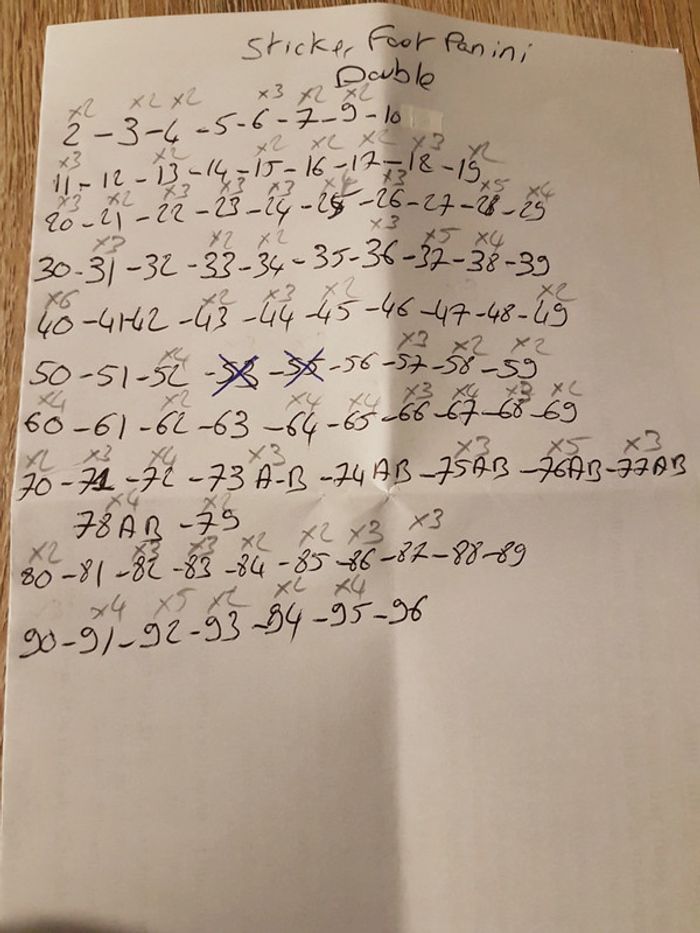 Sticker Foot Panini
Double
x2 x2 x2 x3 x2 x2
2 - 3 - 4 - 5 - 6 - 7 - 9 - 10
x3 x2 x2 x2 x2 x3 x2
11 - 12 - 13 - 14 - 15 - 16 - 17 - 18 - 19
x3 x2 x3 x3 x3 x4 x3 x5 x4
20 - 21 - 22 - 23 - 24 - 25 - 26 - 27 - 28 - 29
x3 x2 x2 x3 x5 x4
30 - 31 - 32 - 33 - 34 - 35 - 36 - 37 - 38 - 39
x6 x2 x3 x2 x2
40 - 41 - 42 - 43 - 44 - 45 - 46 - 47 - 48 - 49
x4 x3 x2 x2
50 - 51 - 52 - 53 - 55 - 56 - 57 - 58 - 59
x4 x2 x4 x4 x3 x4 x3 x2
60 - 61 - 62 - 63 - 64 - 65 - 66 - 67 - 68 - 69
x2 x3 x4 x3 x3 x5 x3
70 - 71 - 72 - 73 A-B - 74 AB - 75AB - 76AB - 77AB
x4 x2
78 AB - 79
x2 x3 x3 x2 x2 x3 x3
80 - 81 - 82 - 83 - 84 - 85 - 86 - 87 - 88 - 89
x4 x5 x2 x2 x4
90 - 91 - 92 - 93 - 94 - 95 - 96